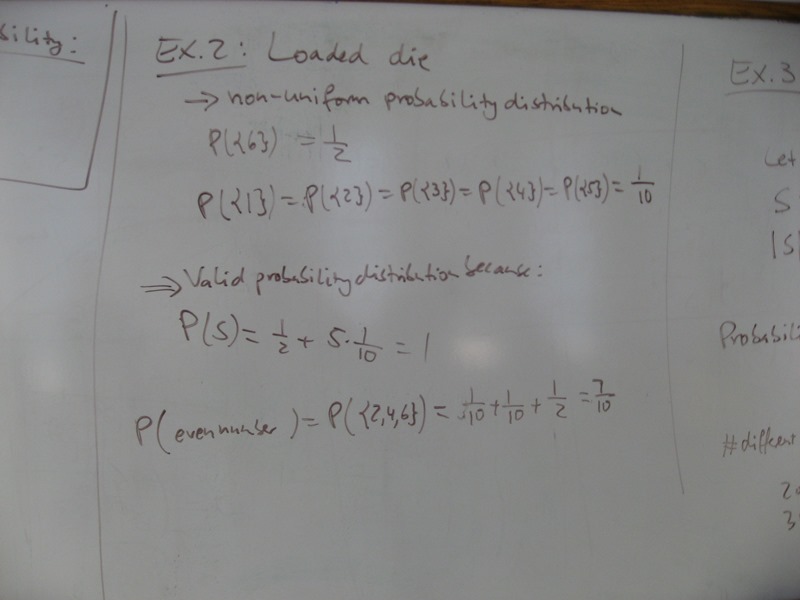 sility:
Ex.2: Loaded die
→ non-uniform probability distribution
P({6}) = 1/2
P({1}) = P({2}) = P({3}) = P({4}) = P({5}) = 1/10
⇒ Valid probability distribution because:
P(S) = 1/2 + 5·1/10 = 1
P(even number) = P({2,4,6}) = 1/10 + 1/10 + 1/2 = 7/10
Ex.3
Let
S
|S|
Probabili
#different
2
3